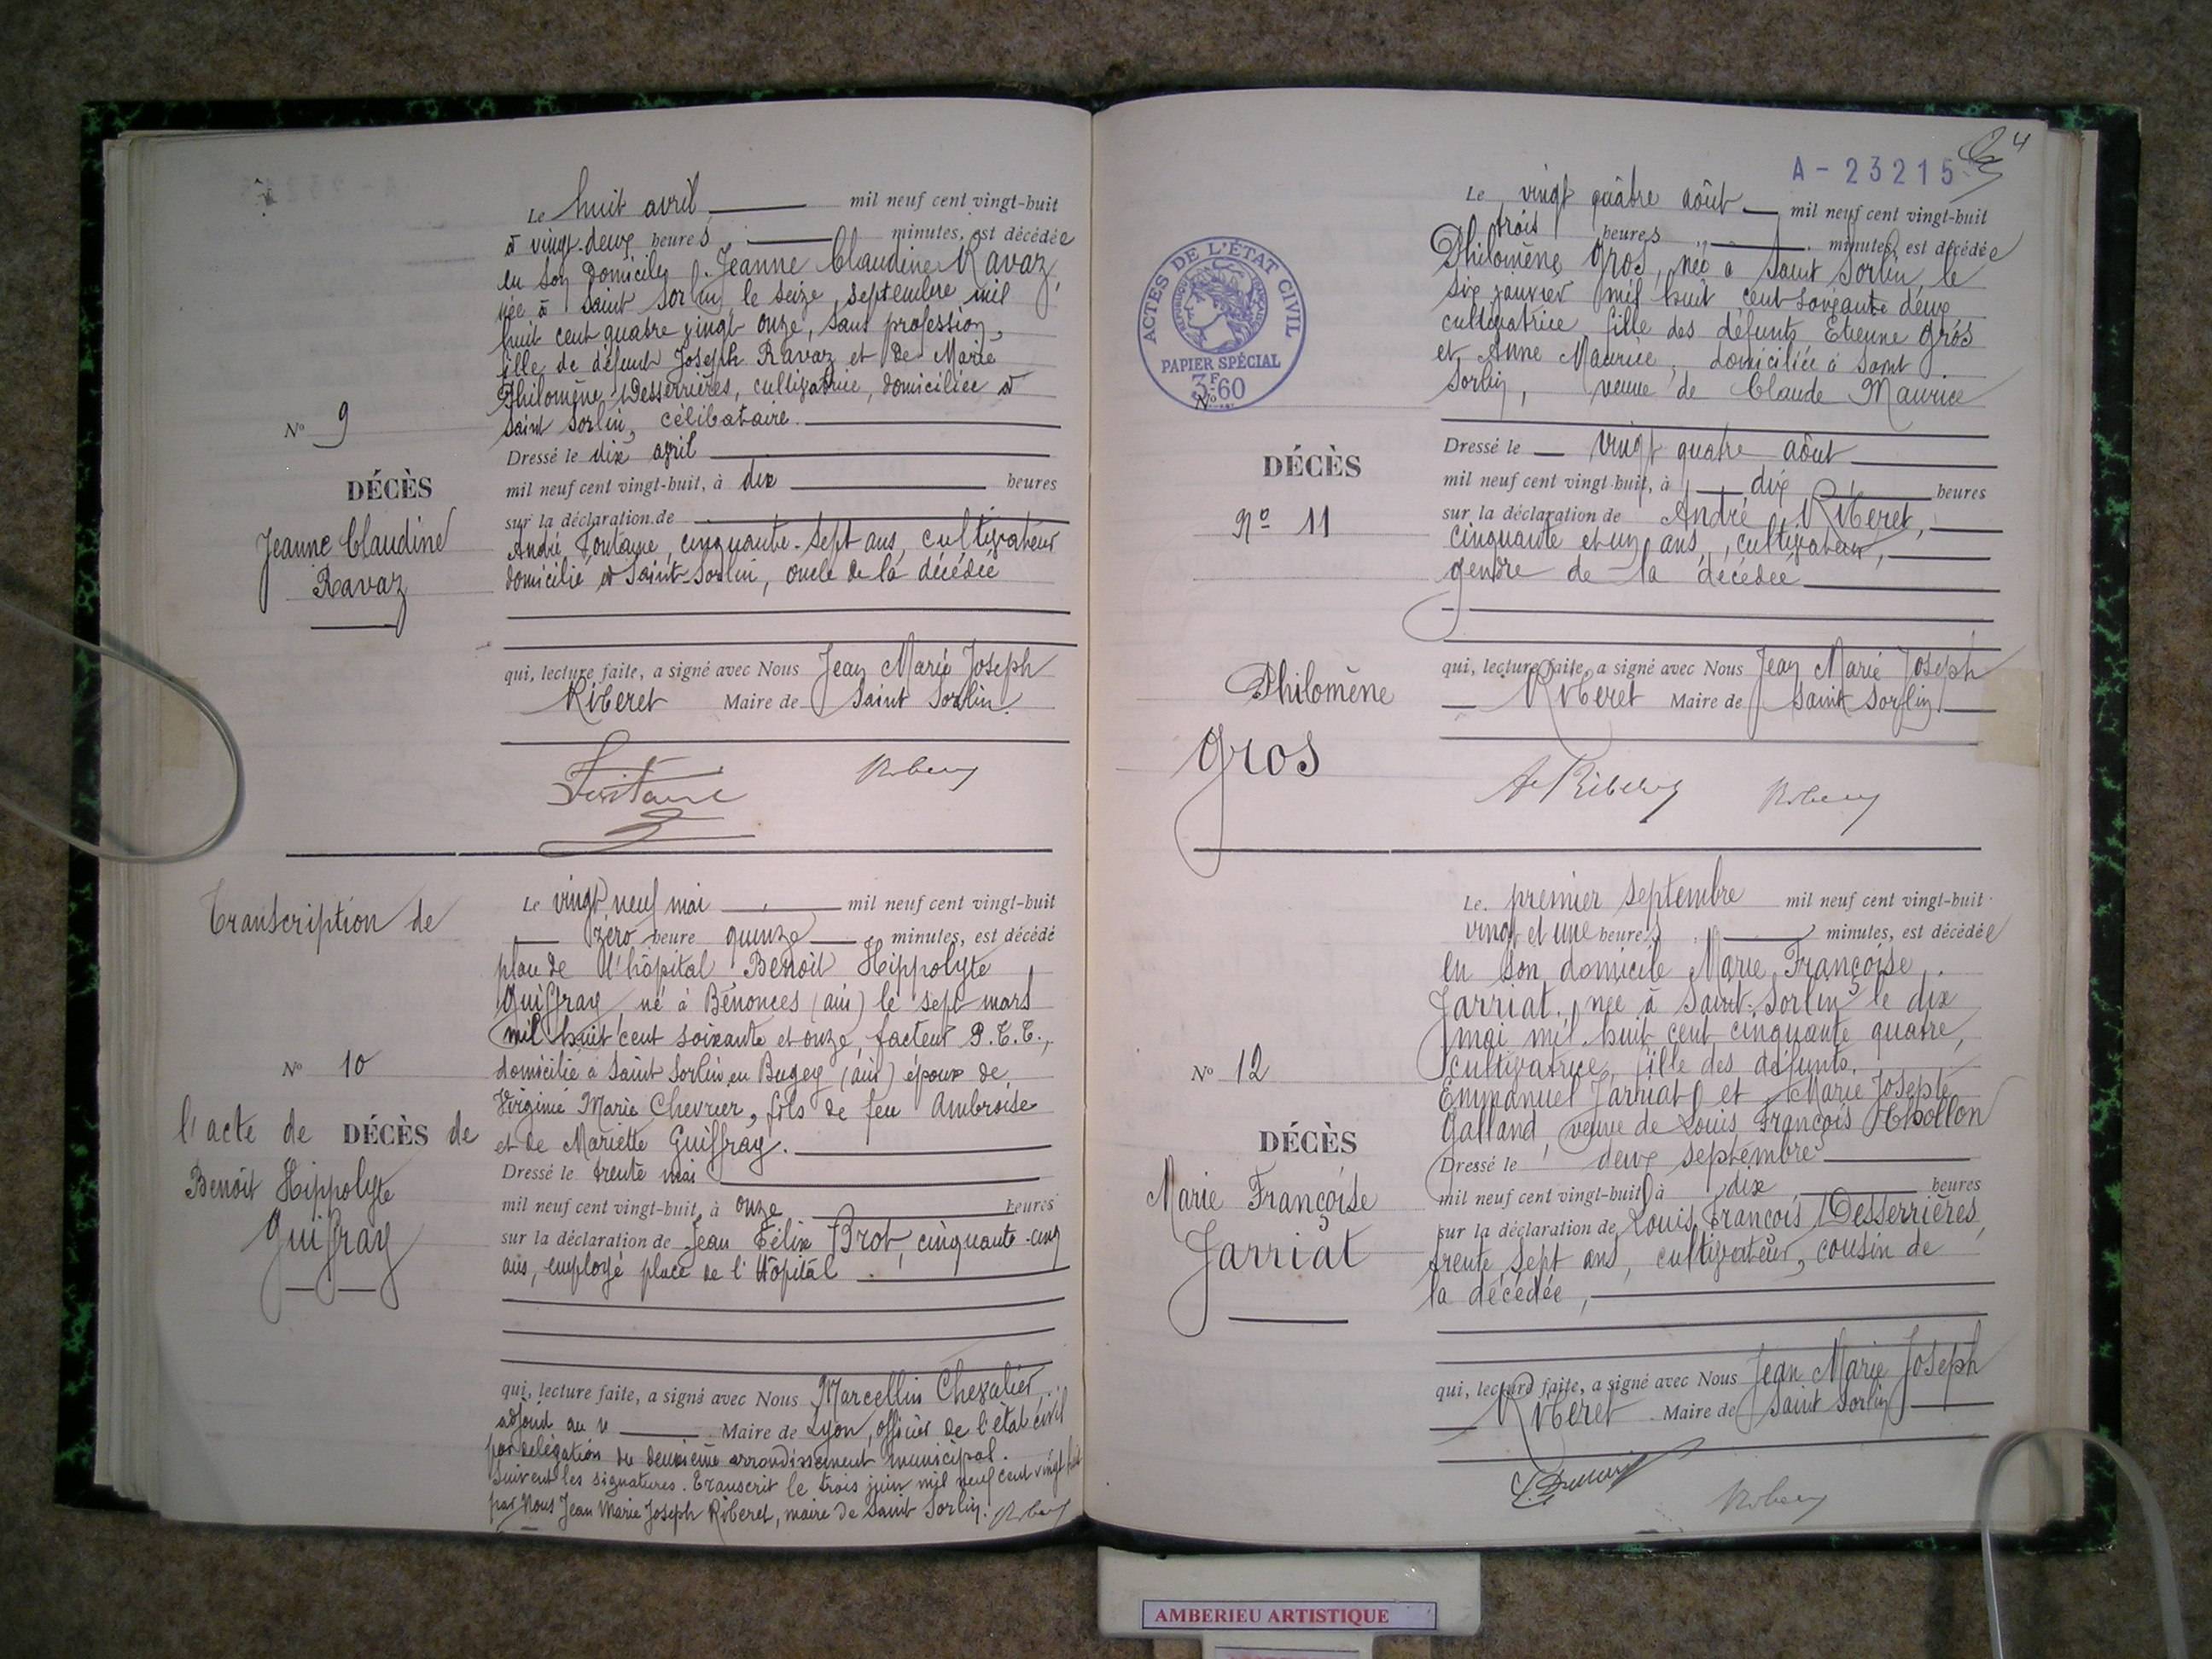 Le huit avril mil neuf cent vingt-huit
à vingt-deux heures minutes, est décédée
en son domicile, Jeanne Claudine Ravaz,
née à Saint Sorlin le seize septembre mil
huit cent quatre vingt onze, sans profession,
fille de défunt Joseph Ravaz et de Marie
Philomène Desserrières, cultivatrice, domiciliée à
Saint Sorlin, célibataire.
Dressé le dix avril
mil neuf cent vingt-huit, à dix heures
sur la déclaration de
André Fontaine, cinquante-sept ans, cultivateur
domicilié à Saint-Sorlin, oncle de la décédée
qui, lecture faite, a signé avec Nous Jean Marie Joseph
Riberet Maire de Saint Sorlin.
Fontaine
N° 9
DÉCÈS
Jeanne Claudine
Ravaz
Transcription de
N° 10
l'acte de DÉCÈS de
Benoît Hippolyte
Guiffray
Le vingt neuf mai mil neuf cent vingt-huit
zéro heure quinze minutes, est décédé
place de l'hôpital Benoît Hippolyte
Guiffray, né à Bénonces (ain) le sept mars
mil huit cent soixante et onze, facteur P.T.T.,
domicilié à Saint Sorlin en Bugey (ain) époux de
Virginie Marie Chevrier, fils de feu Ambroise
et de Mariette Guiffray.
Dressé le trente mai
mil neuf cent vingt-huit, à onze heures
sur la déclaration de Jean Félix Brot, cinquante-cinq
ans, employé place de l'Hôpital
qui, lecture faite, a signé avec Nous Marcellin Chevalier,
adjoint au Maire de Lyon, officier de l'état civil
par délégation du deuxième arrondissement municipal.
Suivent les signatures. Transcrit le trois juin mil neuf cent vingt huit
par Nous Jean Marie Joseph Riberet, maire de Saint Sorlin.
4
A-23215
ACTES DE L'ÉTAT CIVIL
RÉPUBLIQUE FRANÇAISE
PAPIER SPÉCIAL
3F60
N°
DÉCÈS
N° 11
Philomène
Gros
Le vingt quatre août mil neuf cent vingt-huit
trois heures minutes, est décédée
Philomène Gros, née à Saint Sorlin, le
six janvier mil huit cent soixante deux
cultivatrice fille des défunts Etienne Gros
et Anne Maurice, domiciliée à Saint
Sorlin, veuve de Claude Maurice
Dressé le vingt quatre août
mil neuf cent vingt-huit, à dix heures
sur la déclaration de André Riberet,
cinquante et un ans, cultivateur,
gendre de la décédée
qui, lecture faite, a signé avec Nous Jean Marie Joseph
Riberet Maire de Saint Sorlin
A Riberet
N° 12
DÉCÈS
Marie Françoise
Jarriat
Le premier septembre mil neuf cent vingt-huit
vingt et une heures minutes, est décédée
en son domicile Marie Françoise
Jarriat, née à Saint-Sorlin le dix
mai mil huit cent cinquante quatre,
cultivatrice, fille des défunts
Emmanuel Jarriat et Marie Josepte
Galland, veuve de Louis François Chollon
Dressé le deux septembre
mil neuf cent vingt-huit, à dix heures
sur la déclaration de Louis François Desserrières,
trente sept ans, cultivateur, cousin de
la décédée,
qui, lecture faite, a signé avec Nous Jean Marie Joseph
Riberet Maire de Saint Sorlin
AMBERIEU ARTISTIQUE